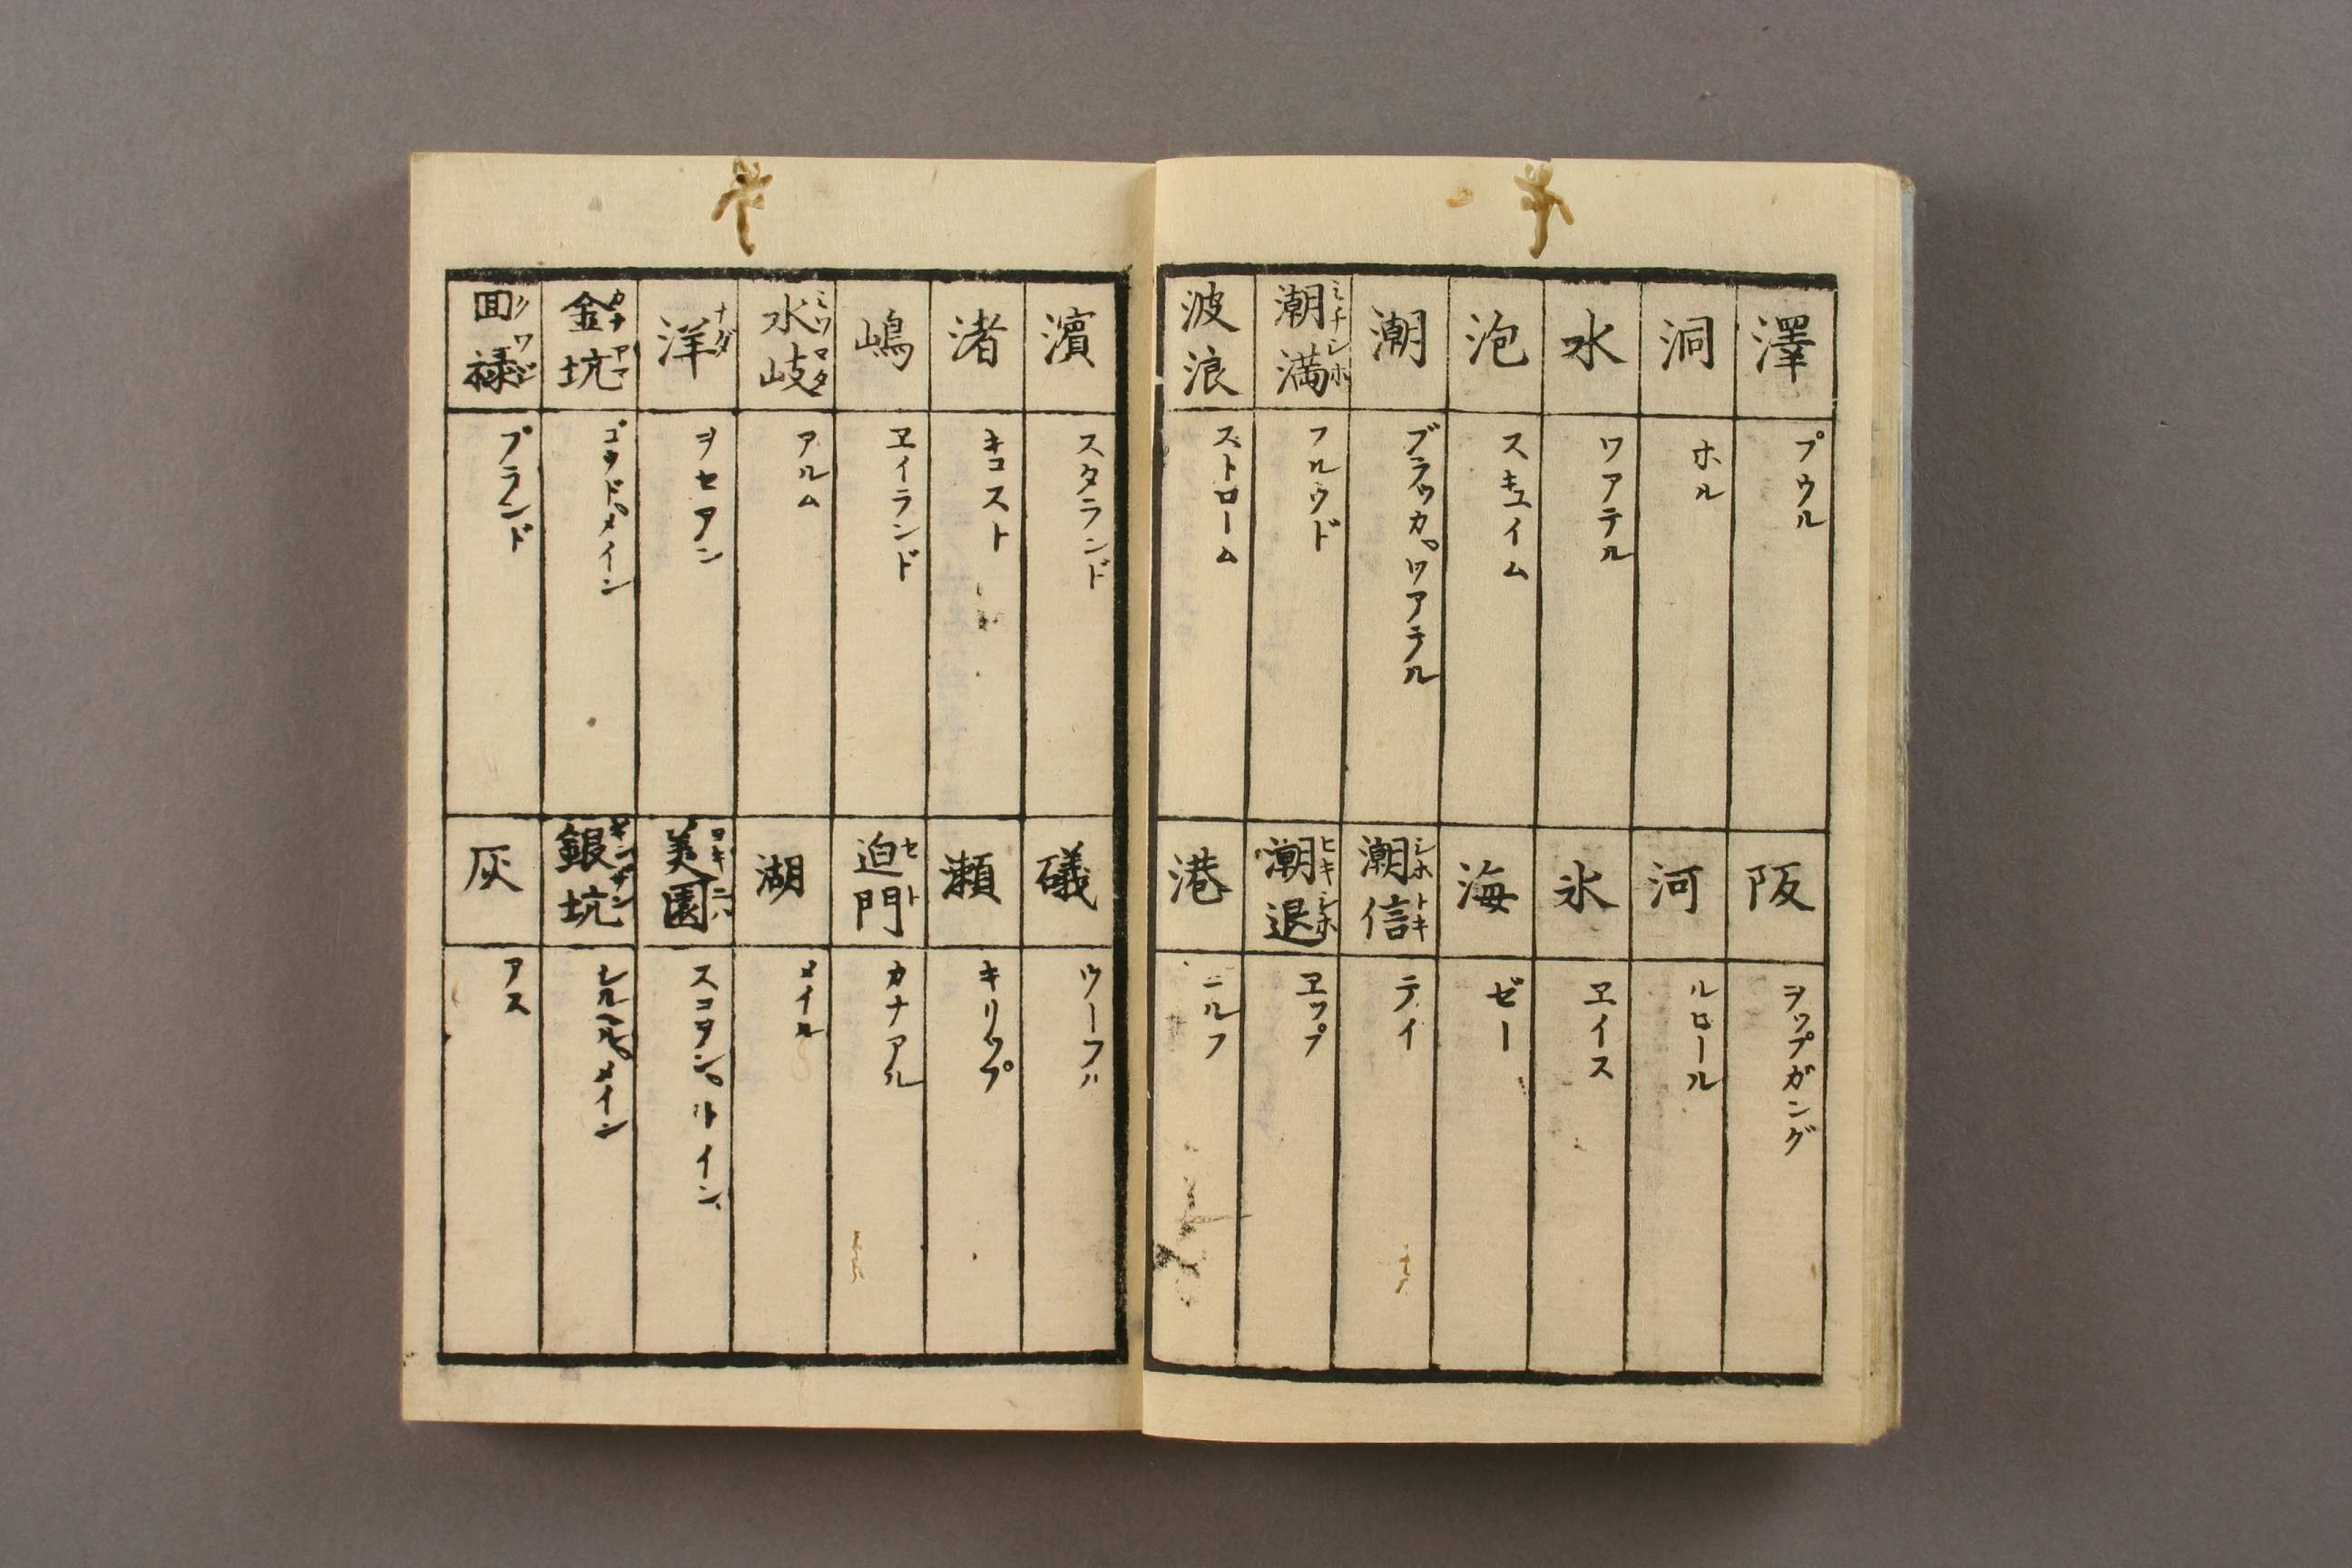 澤 プウル
洞 ホル
水 ワアテル
泡 スキュイム
潮 ブラッカ。ワアテル
潮満 ミチシホ フルウド
波浪 ストローム
阪 ヲップガング
河 ルロール
氷 ヱイス
海 ゼー
潮信 シホトキ テイ
潮退 ヒキシホ ヱップ
港 ニルフ
濱 スタランド
渚 キコスト
嶋 ヱイランド
水岐 ミヅマタ アルム
洋 ナダ ヲセアン
金坑 カナアマ ゴウド。メイン
回禄 クワジ ブランド
礒 ウーフル
瀬 キリップ
迫門 セト カナアル
湖 メイル
美園 スコヲン。トイン
銀坑 ギンザン シルヘル。メイン
灰 アス